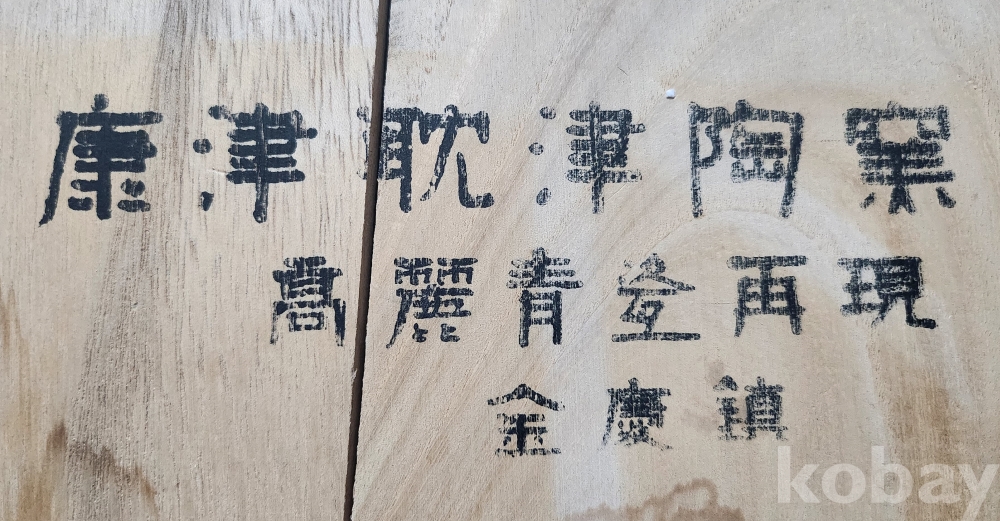 康津耽津陶窯
高麗青瓷再現
金慶鎮
kobay